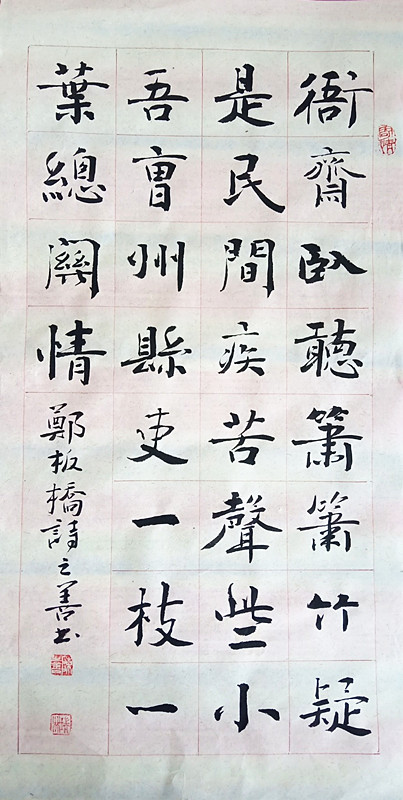 衙齋臥聽簫簫竹疑
是民間疾苦聲些小
吾曺州縣吏一枝一
葉總關情
鄭板橋詩之善书